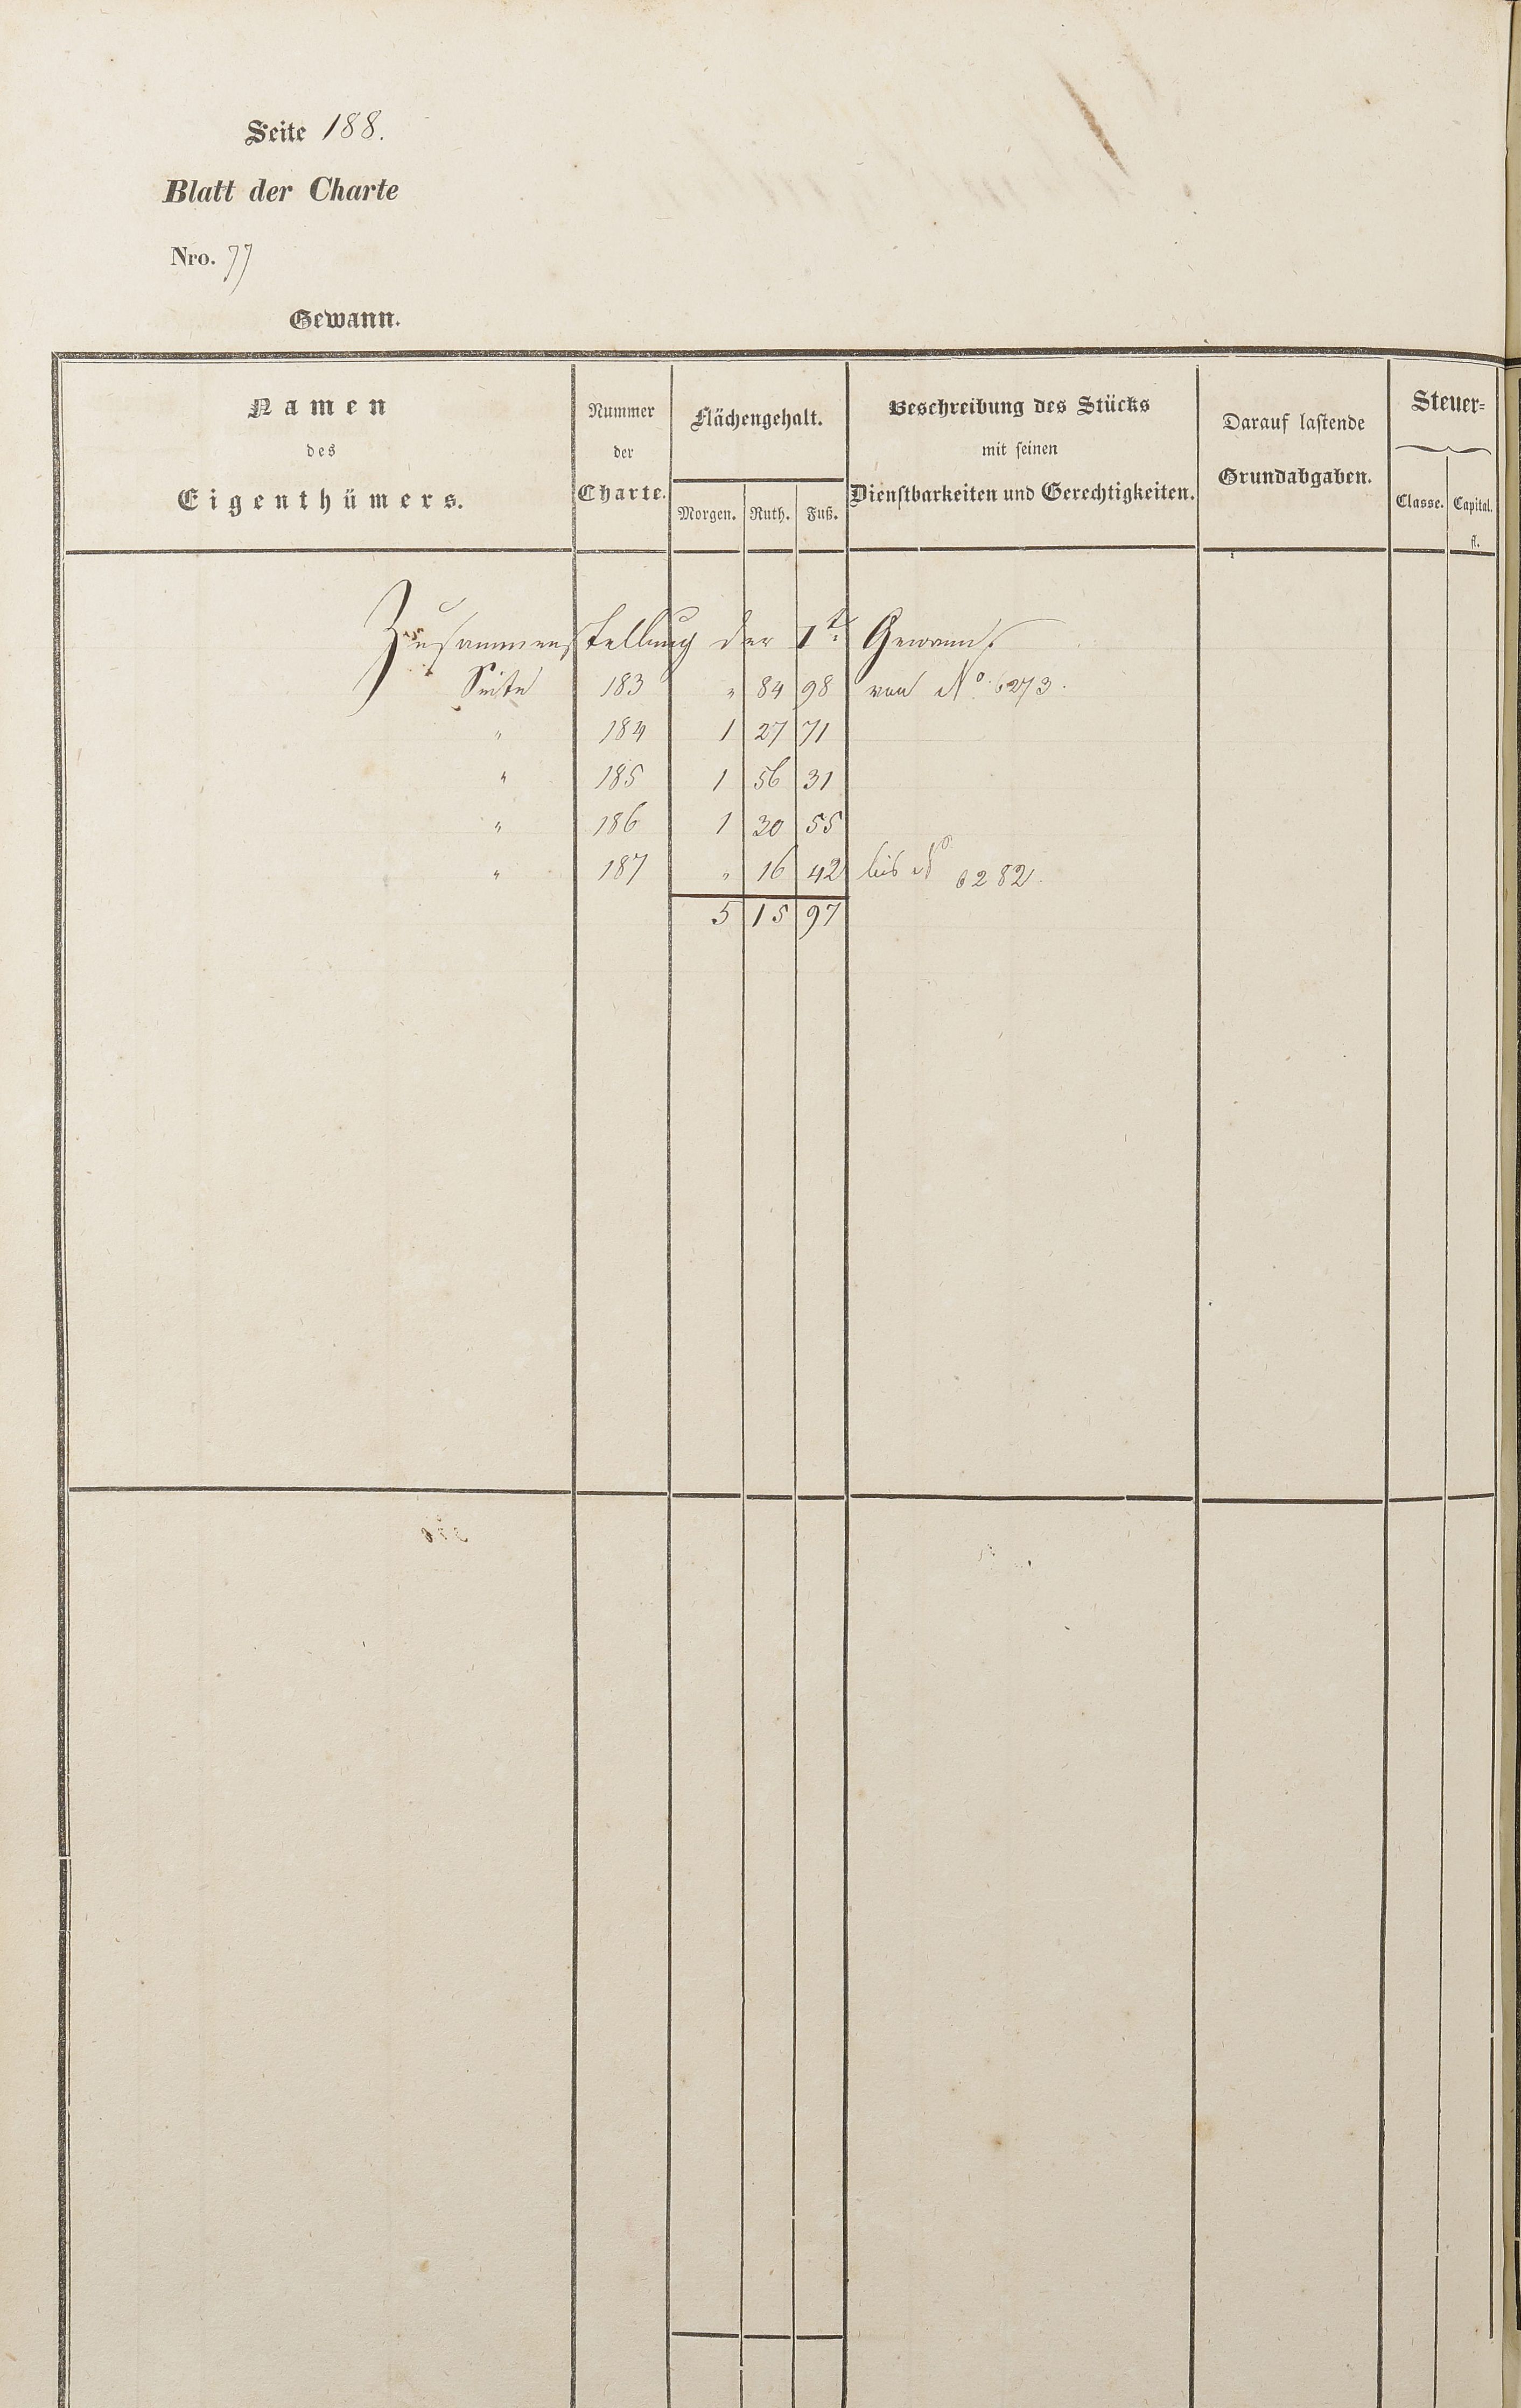 Seite 188.
Blatt der Charte
Nro. 77
Gewann.
Namen
des
Eigenthümers.
Nummer
der
Charte.
Flächengehalt.
Morgen. Ruth. Fuß.
Beschreibung des Stücks
mit seinen
Dienstbarkeiten und Gerechtigkeiten.
Darauf lastende
Grundabgaben.
Steuer=
Classe. Capital.
fl.
Zusammenstellung der 1t. Gewann.
Seite 183 " 84 98 von No. 6273.
" 184 1 27 71
" 185 1 56 31
" 186 1 30 55
" 187 " 16 42 bis No 6282.
5 15 97